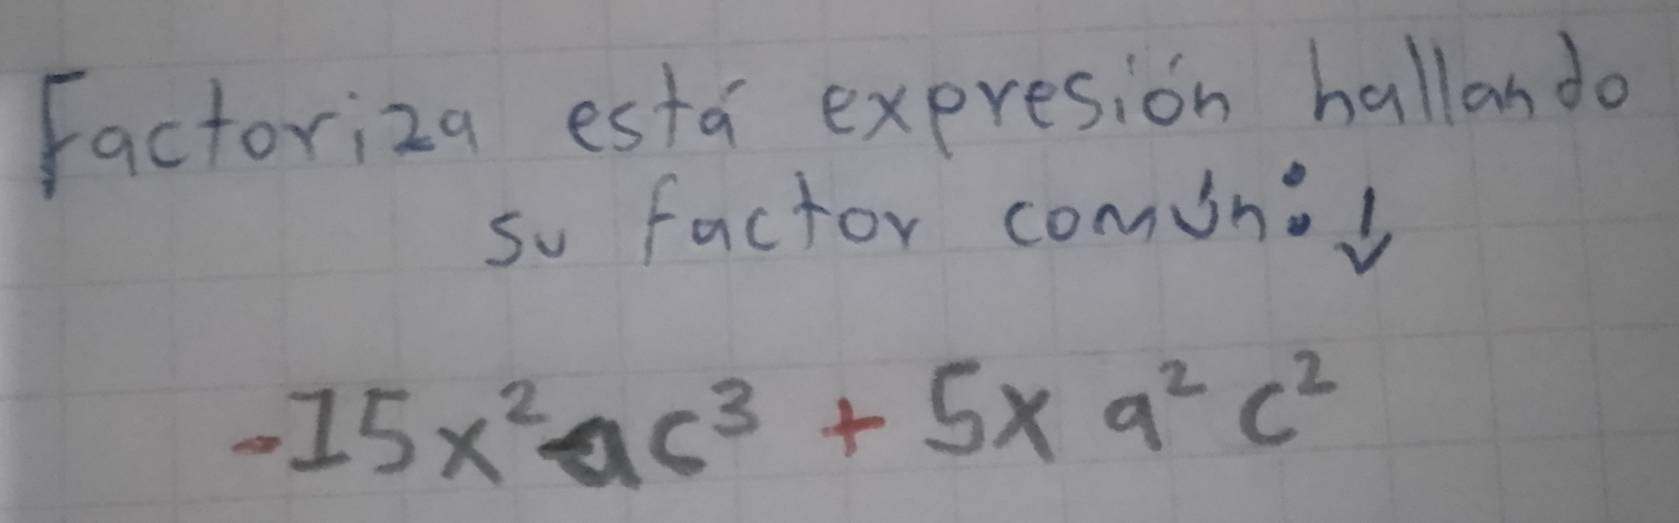 Factoriza está expresión hallando
su factor común: ↓
-15x²ac³ + 5x a² c²